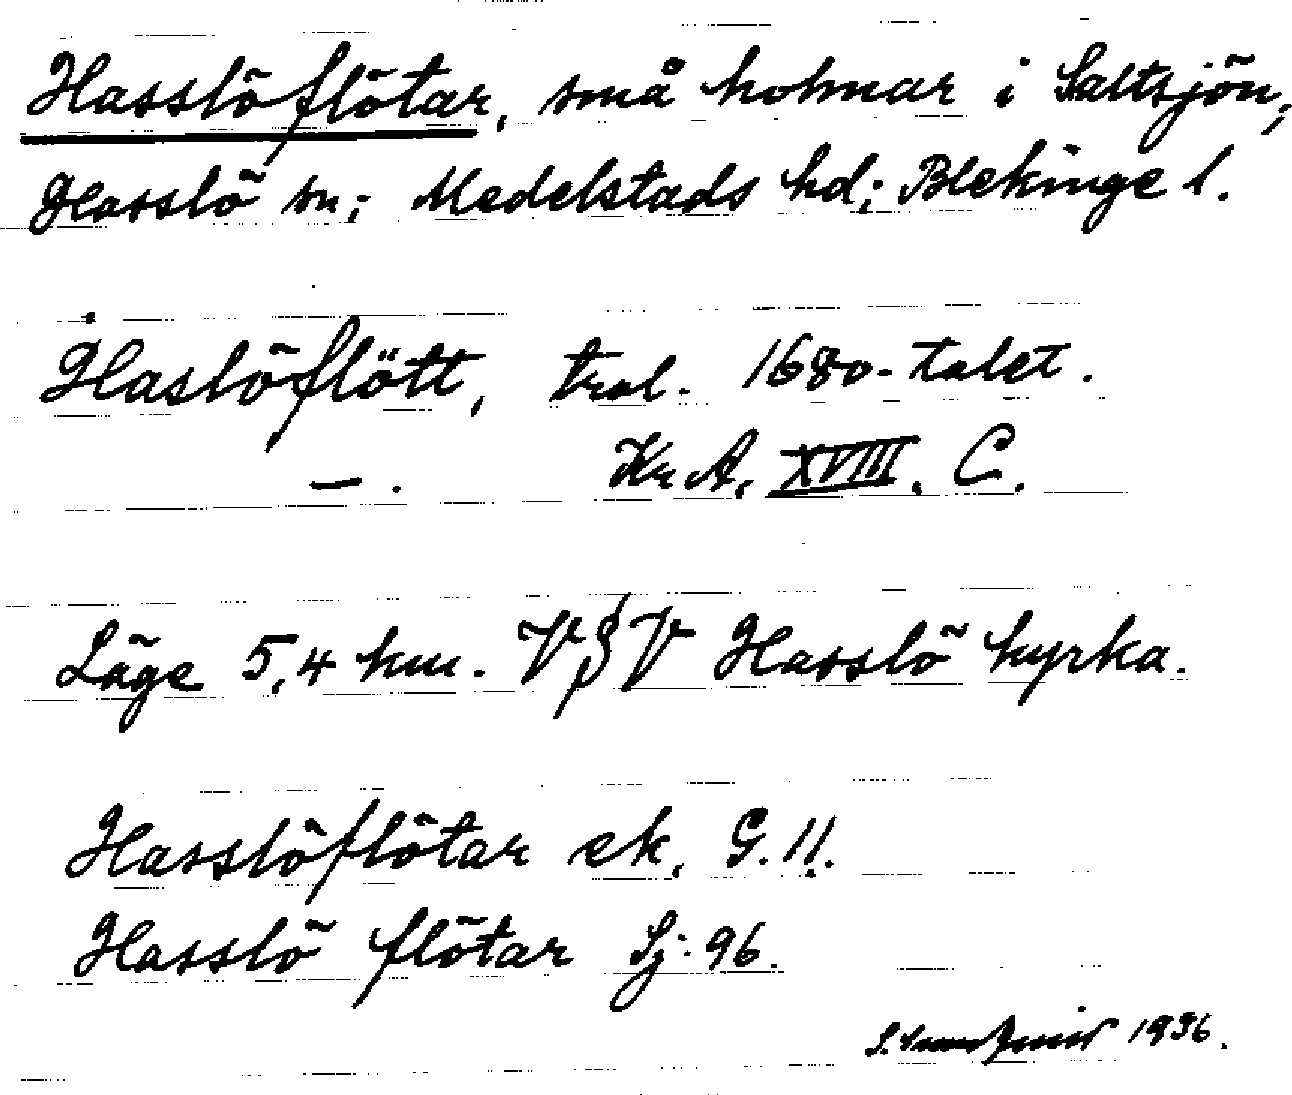 Hasslöflötar, små holmar i Saltsjön;
Hasslö sn; Medelstads hd; Blekinge l.
Haslöflött, trol. 1680-talet.
– . Kr A. XVIII. C.
Läge 5,4 km. VSV Hasslö kyrka.
Hasslöflötar ek. G. 11.
Hasslö flötar Sj. 96.
1936.